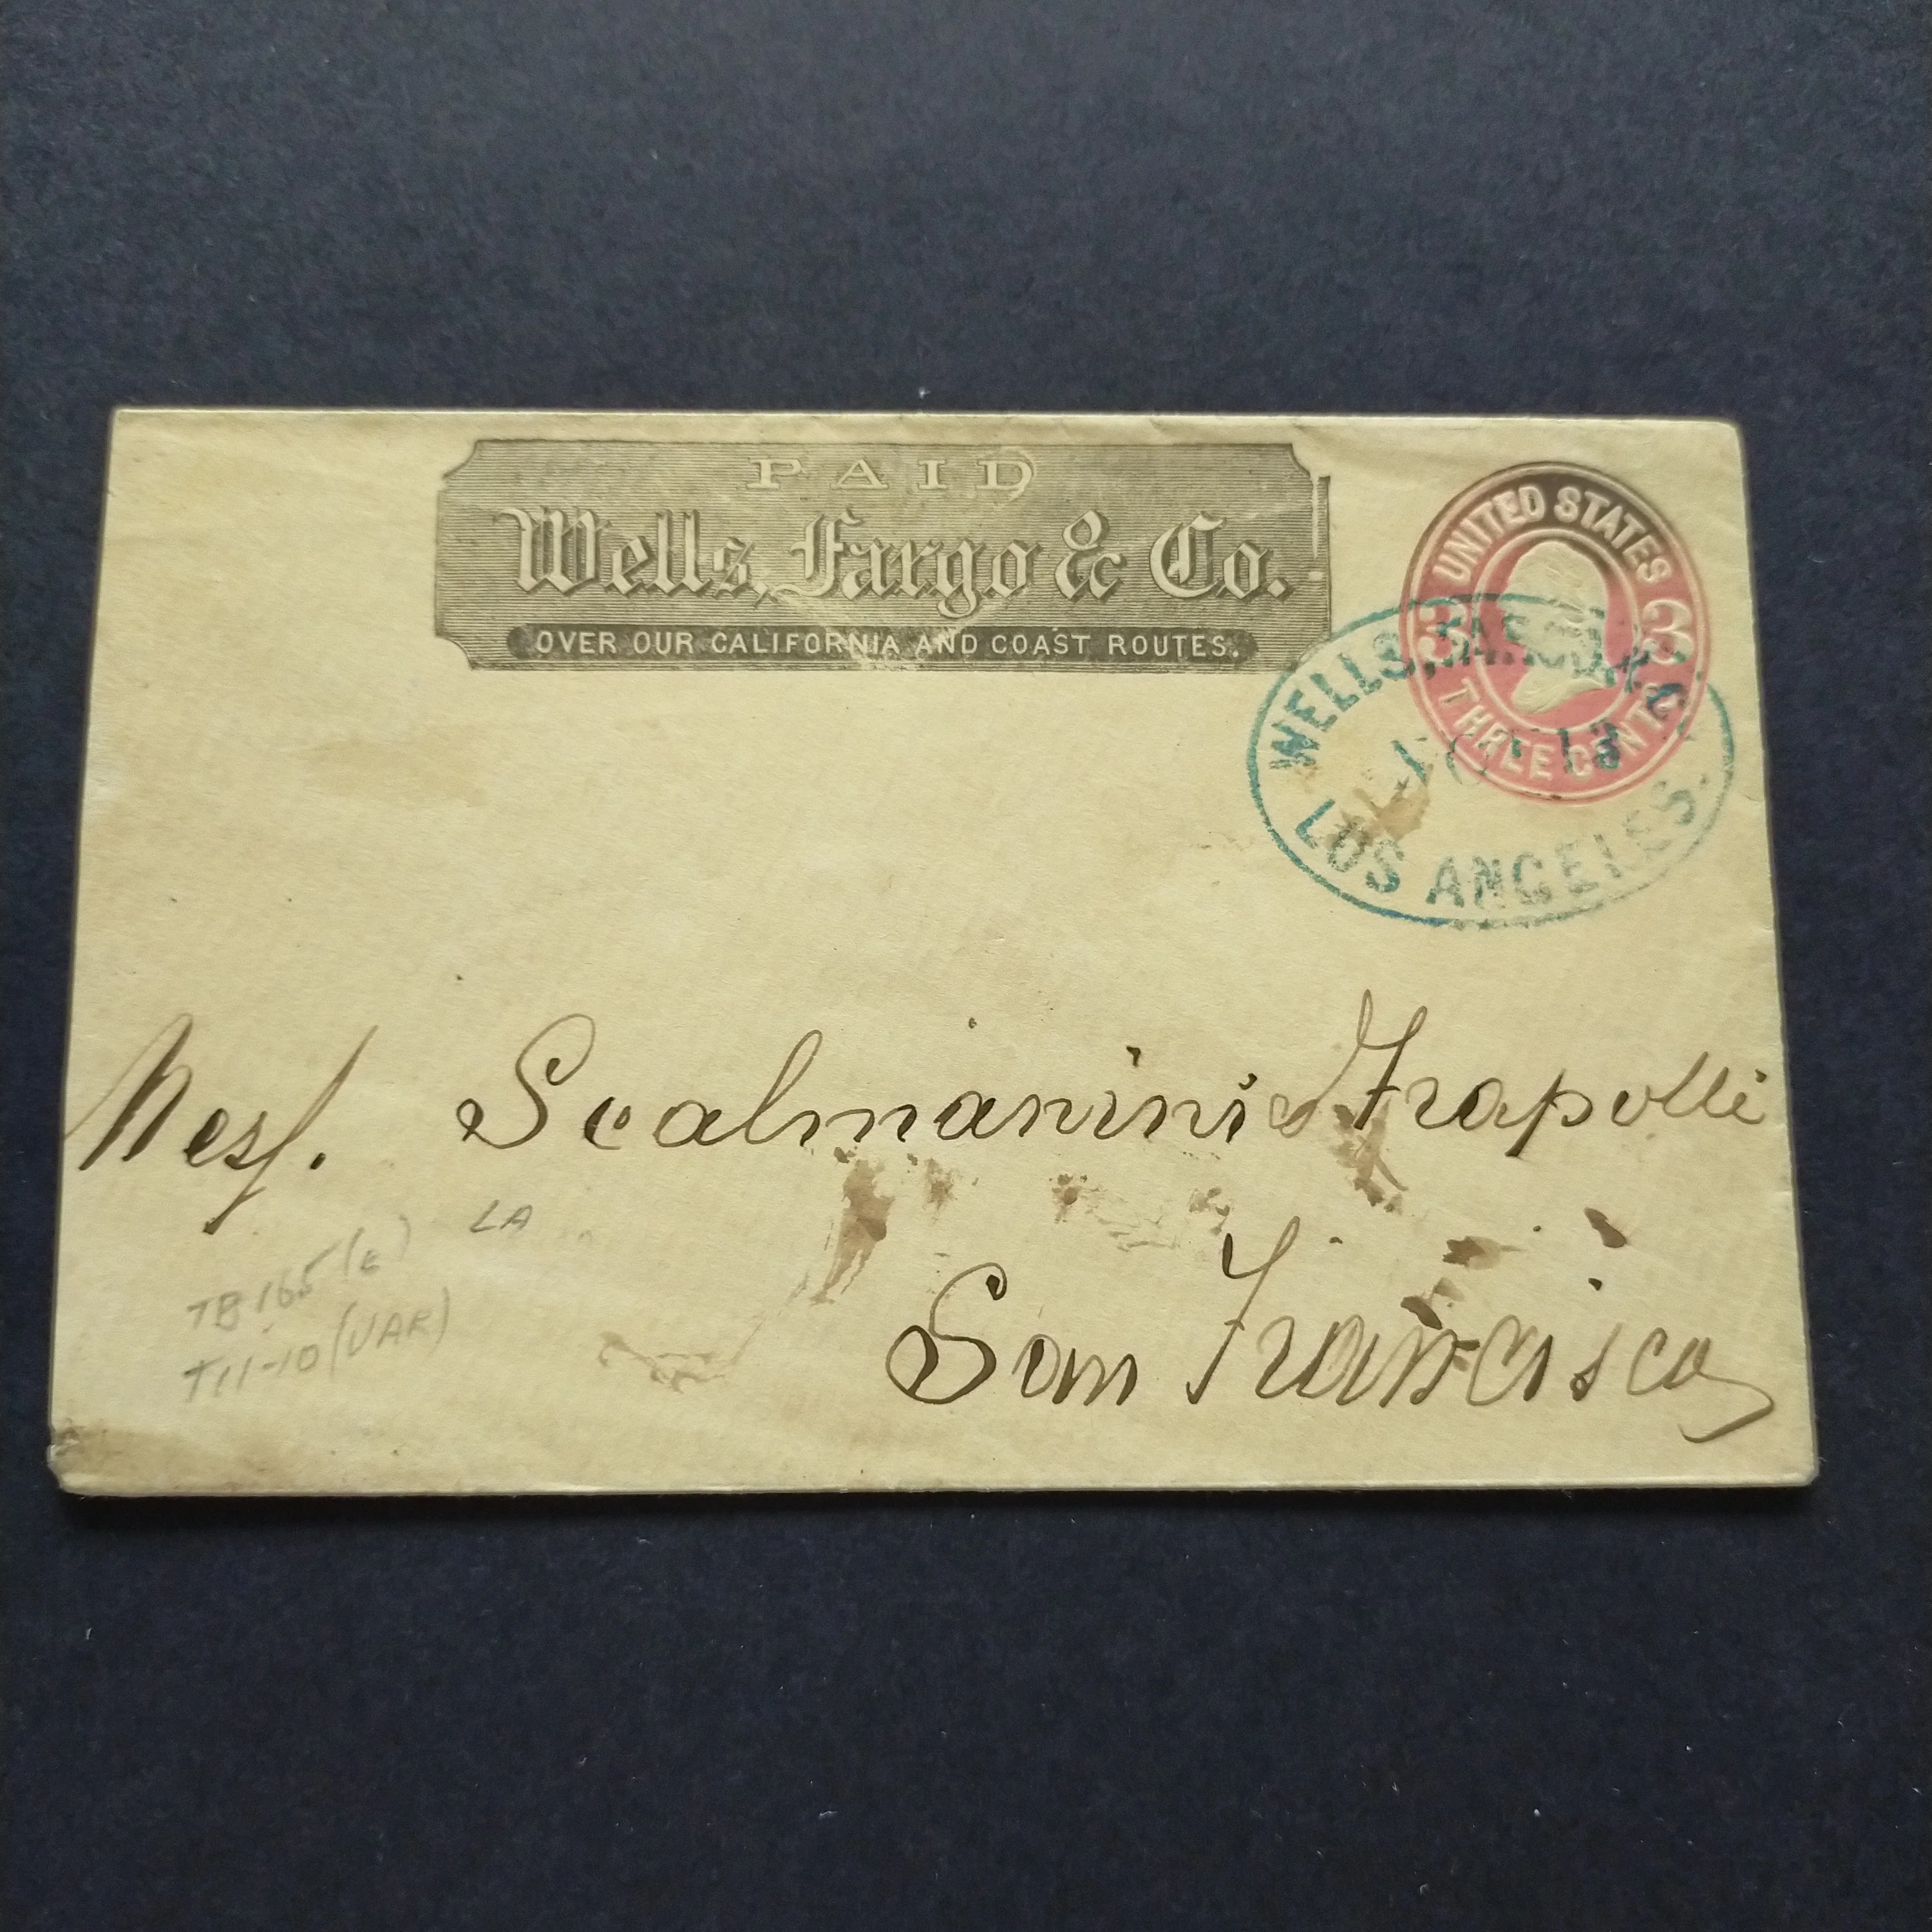 PAID
Wells, Fargo & Co.
OVER OUR CALIFORNIA AND COAST ROUTES.
UNITED STATES
3 3
THREE CENTS
WELLS, FARGO & CO.
13
LOS ANGELES.
Mess. Scalmanini & Frapolli
San Francisco
LA
TB 165 (c)
T11-10 (VAR)